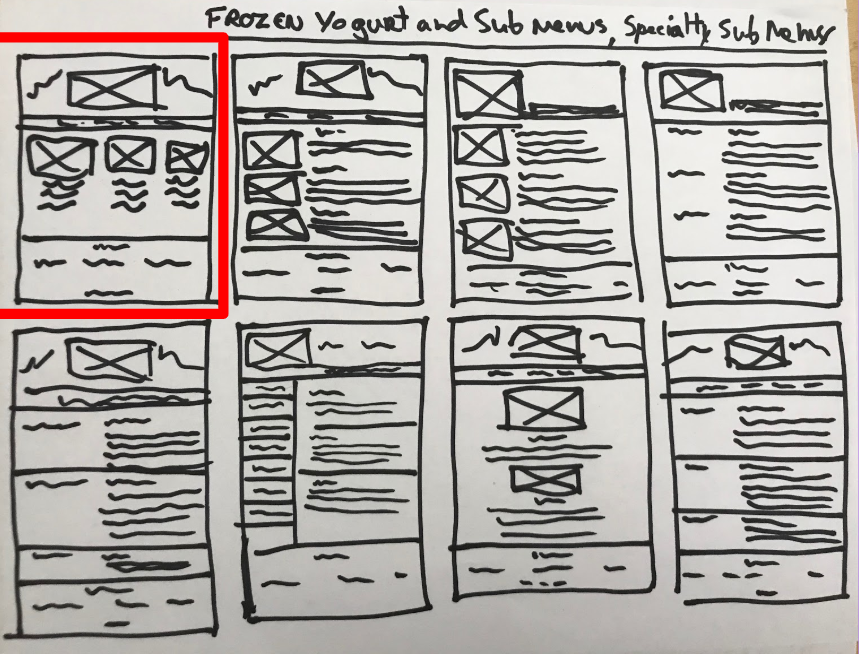 FROZEN Yogurt and Sub Menus, Specialty Sub Menus